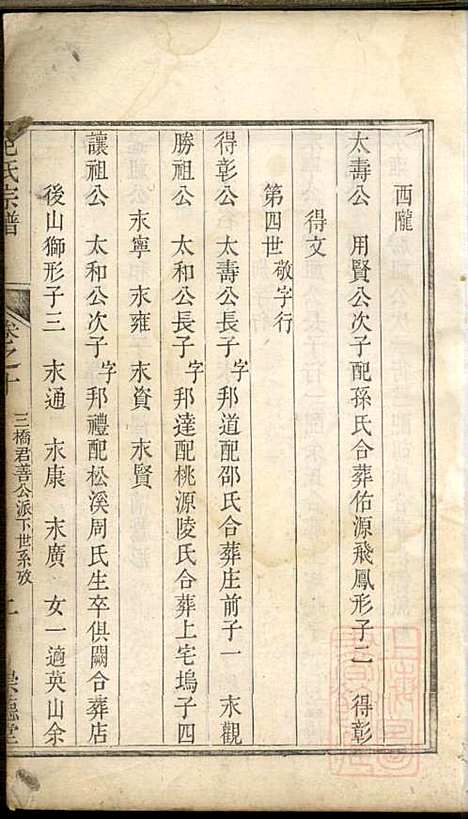 西隴
太壽公 用賢公次子配孫氏合葬佑源飛鳳形子二 得彰
得文
第四世敬字行
得彰公 太壽公長子字邦道配邵氏合葬庄前子一 永觀
勝祖公 太和公長子字邦達配桃源陵氏合葬上宅塢子四
永寧 永雍 永資 永賢
讓祖公 太和公次子字邦禮配松溪周氏生卒俱闕合葬店
後山獅形子三 永通 永康 永廣 女一適英山余
氏宗譜 卷之十 三橋君善公派下世系攷